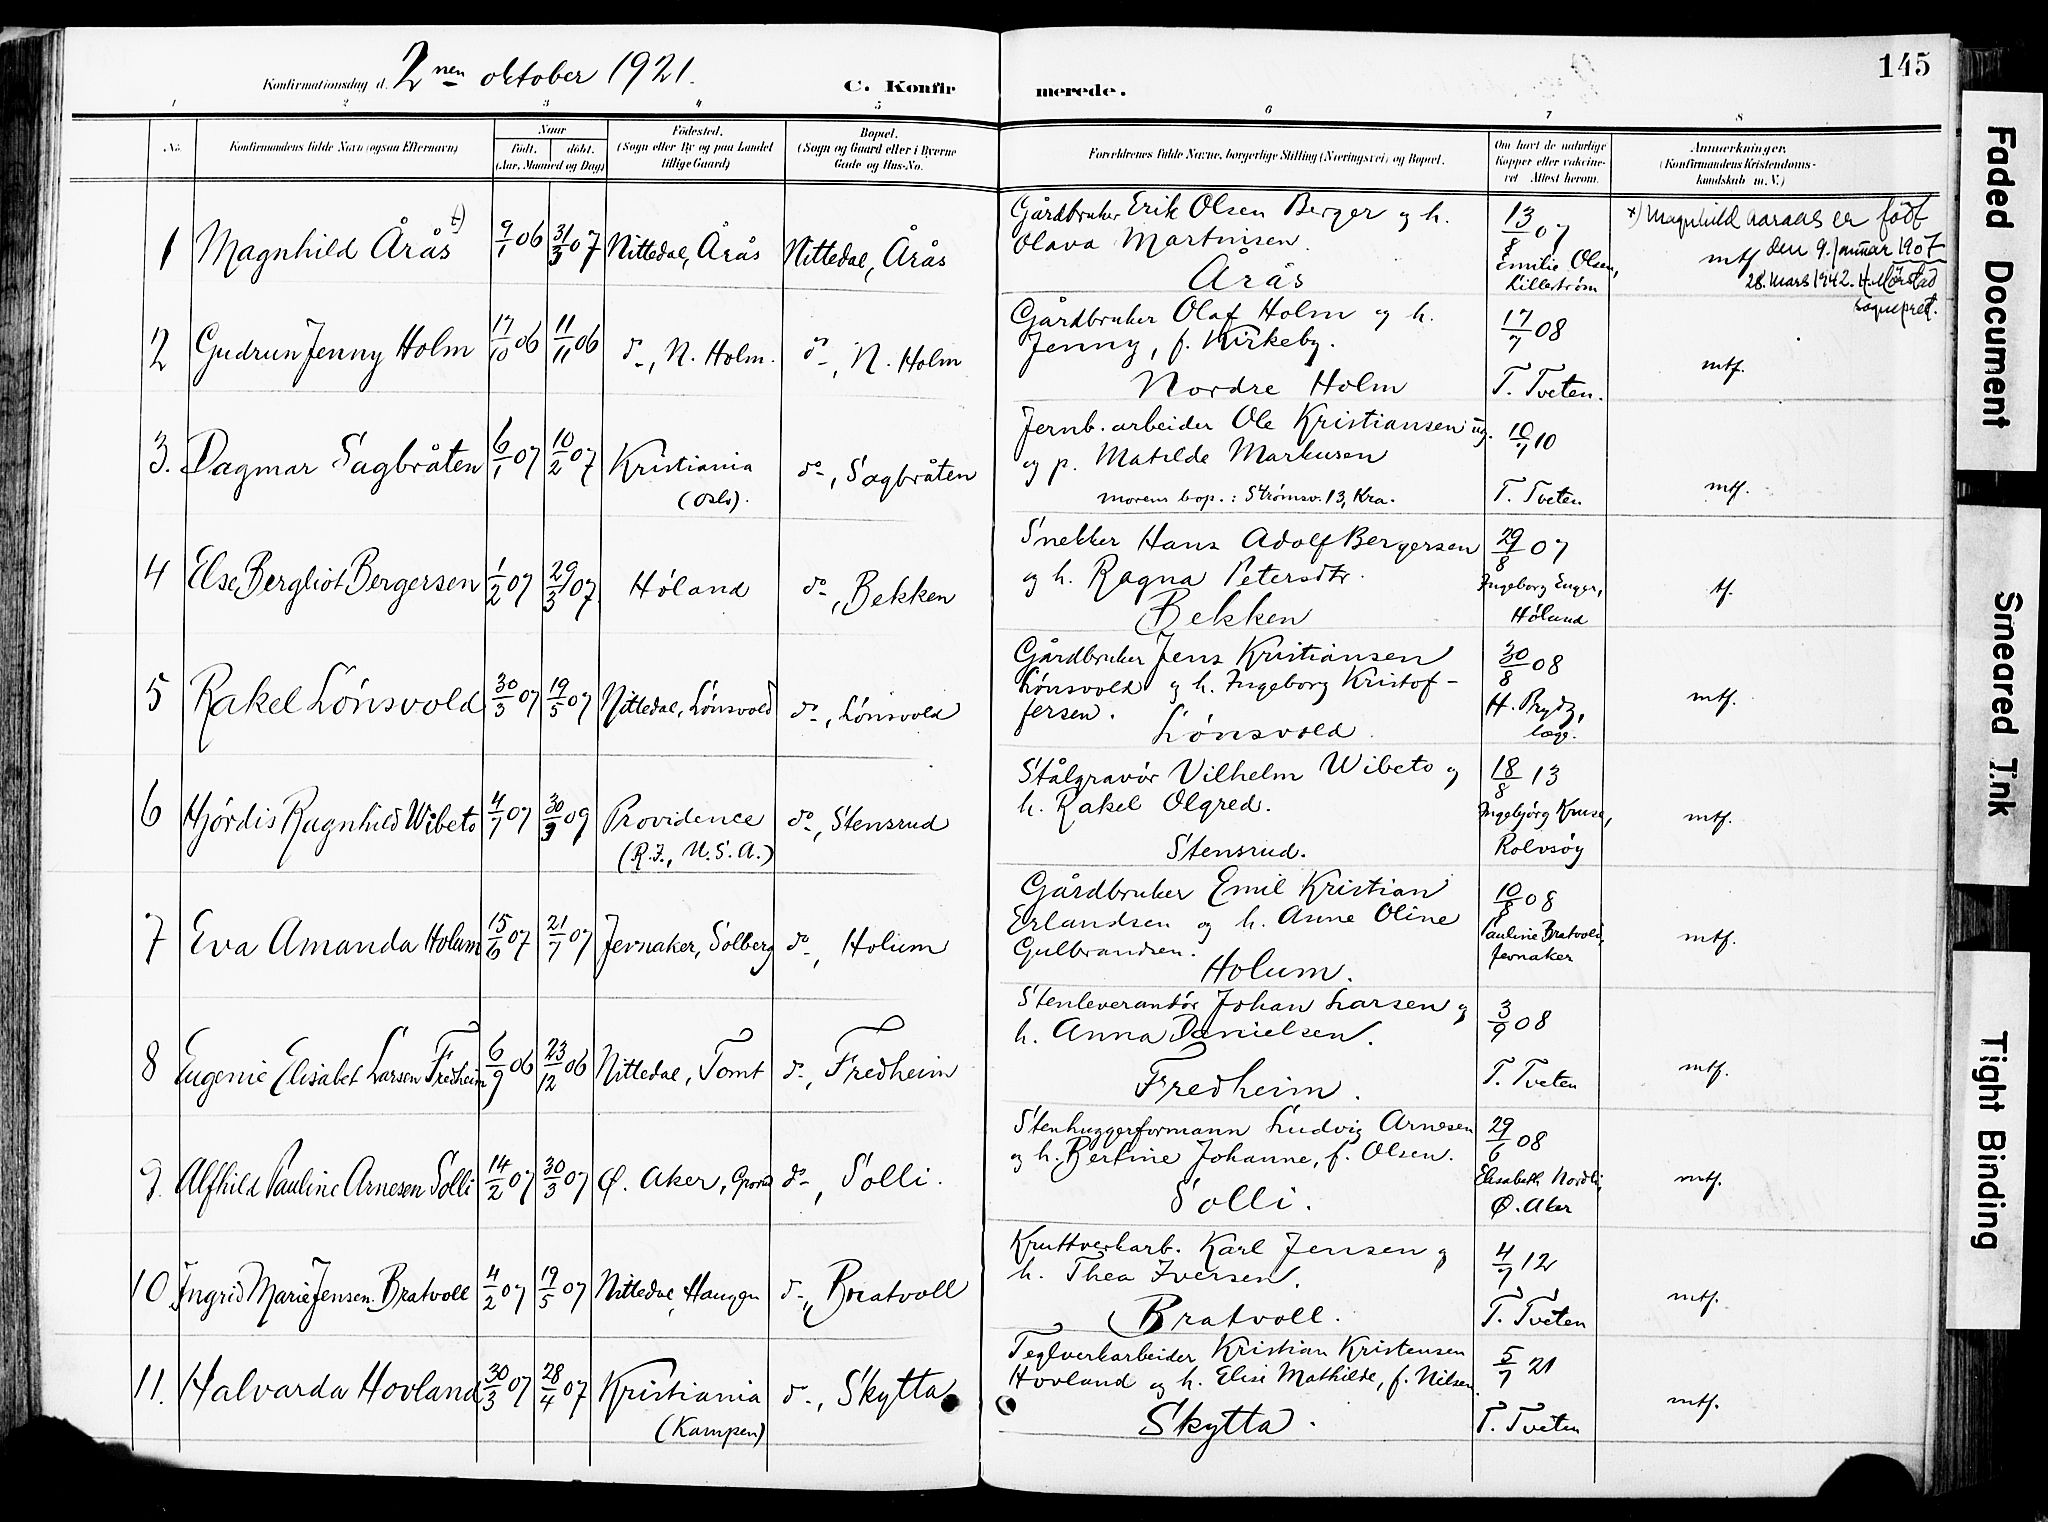 Konfirmationsdag d. 2nen oktober 1921.
C. Konfirmerede.
145
1 2 3 4 5 6 7 8
No.
Konfirmandens fulde Navn (ogsaa Efternavn)
Naar
Født. døbt.
(Aar, Maaned og Dag)
Fødested.
(Sogn eller By og paa Landet
tillige Gaard)
Bopæl.
(Sogn og Gaard eller i Byerne
Gade og Hus-No.
Forældrenes fulde Navne, borgerlige Stilling (Næringsvei) og Bopæl.
Om havt de naturlige
Kopper eller vakcine-
ret Attest herom.
Anmerkninger.
(Konfirmandens Kristendoms-
kundskab m. V.)
1 Magnhild Årås x) 9/1 06 31/3 07 Nittedal, Årås Nittedal, Årås
Gårdbruker Erik Olsen Berger og h.
Olava Martinisen.
Årås
13/8 07
Emilie Olsen,
Lillestrøm
mtf
x) Magnhild Aaraas er født
den 9. januar 1907
28. mars 1942. H. Mørstad
sogneprest.
2 Gudrun Jenny Holm 17/10 06 11/11 06 do, N. Holm. do, N. Holm
Gårdbruker Olaf Holm og h.
Jenny, f. Kirkeby.
Nordre Holm
17/7 08
T. Tveten.
mtf.
3. Dagmar Sagbråten 6/1 07 10/2 07 Kristiania
(Oslo).
do, Sagbråten
Jernb. arbeider Ole Kristiansen ug.
og p. Matilde Markusen
morens bop.: Strømsv. 13, Kra.
10/7 10
T. Tveten
mtf.
4 Else Bergliot Bergersen 1/2 07 29/3 07. Høland do, Bekken
Snekker Hans Adolf Bergersen
og h. Ragna Petersdtr.
Bekken
29/8 07
Ingeborg Enger,
Høland
tf.
5 Rakel Lönsvold 30/3 07 19/5 07 Nittedal, Lönsvold do, Lönsvold
Gårdbruker Jens Kristiansen
Lönsvold og h. Ingeborg Kristof-
fersen.
Lönsvold.
30/8 08
H. Prydz,
læge.
mtf.
6 Hjördis Ragnhild Wibeto 4/7 07 30/3 09 Providence
(R.I., U.S.A.)
do, Stensrud
Stålgravör Vilhelm Wibeto og
h. Rakel Olgred.
Stensrud.
18/8 13
Ingebjørg Kruse,
Rolvsøy
mtf.
7 Eva Amanda Holum 15/6 07 21/7 07 Jevnaker, Solberg do, Holum
Gårdbruker Emil Kristian
Erlandsen og h. Anne Oline
Gulbrandsen.
Holum.
10/8 08
Pauline Bratvold,
Jevnaker
mtf.
8 Eugenie Elisabet Larsen Fredheim 6/9 06 23/12 06 Nittedal, Tomt do, Fredheim
Stenleverandör Johan Larsen og
h. Anna Danielsen.
Fredheim.
3/9 08
T. Tveten
mtf.
9. Alfhild Pauline Arnesen Solli 14/2 07 30/3 07 Ø. Aker, Grorud do, Solli.
Stenhuggerformann Ludvig Arnesen
og h. Bertine Johanne, f. Olsen.
Solli.
29/6 08
Elisabeth Nordli,
Ø. Aker
mtf.
10. Ingrid Marie Jensen Bratvoll 4/2 07 19/5 07 Nittedal, Haugen do, Bratvoll
Kruttverkarb. Karl Jensen og
h. Thea Iversen.
Bratvoll.
4/7 12
T. Tveten
mtf.
11. Halvarda Hovland 30/3 07 28/4 07 Kristiania
(Kampen)
do, Skytta
Teglverkarbeider Kristian Kristensen
Hovland og h. Elise Mathilde, f. Nilsen.
Skytta.
5/7 21
T. Tveten
mtf.
Faded Document
Smeared Ink
Tight Binding